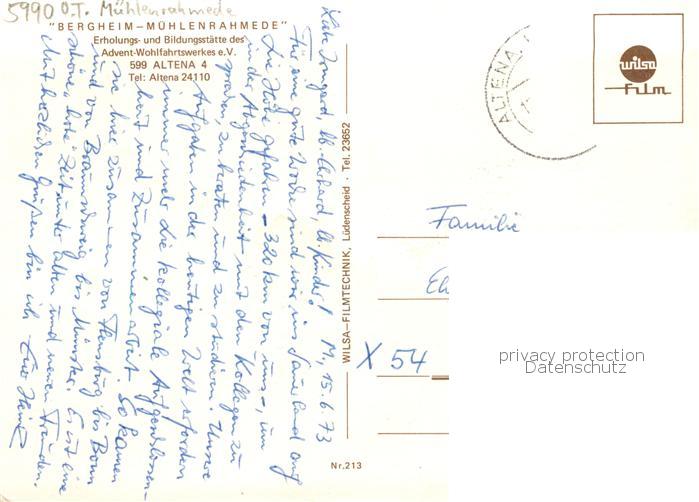 5990 O.T. Mühlenrahmede
"BERGHEIM-MÜHLENRAHMEDE"
Erholungs- und Bildungsstätte des
Advent-Wohlfahrtswerkes e.V.
599 ALTENA 4
Tel: Altena 24110
Liebe Irmgard, lb. Gerhard, lb. Kinder! M, 15.6.73
Für eine gute Woche sind wir ins Sauerland auf
die Höhe gefahren - 320 km von uns -, um
in der Abgeschiedenheit mit den Kollegen zu
sprechen, zu beraten und zu studieren. Unsere
Aufgaben in der heutigen Welt erfordern
immer mehr die kollegiale Aufgeschlossen-
heit und Zusammenarbeit. So kamen
sie hier zusammen von Flensburg bis Bonn
und von Braunschweig bis Münster. Es ist eine
schöne, Zeit unter alten und neuen Freunden.
Mit herzlichen Grüßen bin ich Euer Heinz
WILSA-FILMTECHNIK, Lüdenscheid · Tel. 23652
Nr.213
ALTENA
wilsa
Film
Familie
X 54
privacy protection
Datenschutz